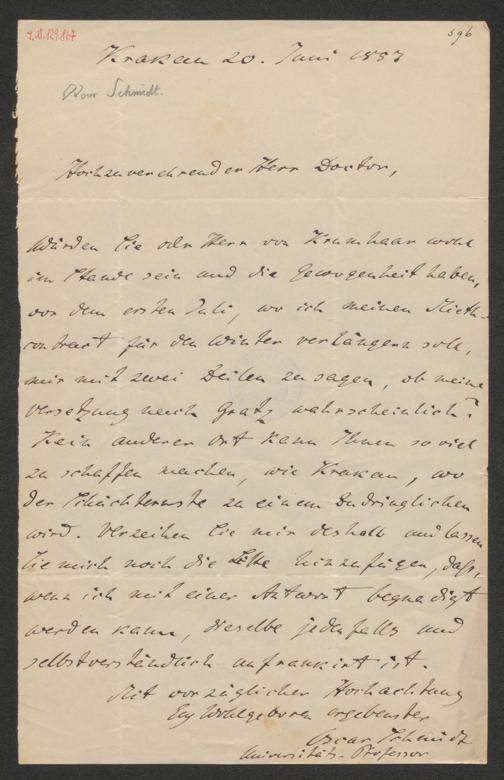 I.N. 129.867
596
Krakau 20. Juni 1857
Oscar Schmidt.
Hochzuverehrender Herr Doctor,
Würden Sie oder Herr von Krumhaar wohl
im Stande sein und die Gewogenheit haben,
vor dem ersten Juli, wo ich meinen Mieth-
contract für den Winter verlängern soll,
mir mit zwei Zeilen zu sagen, ob meine
Versetzung nach Gratz wahrscheinlich?
Kein anderer Ort kann Ihnen so viel
zu schaffen machen, wie Krakau, wo
der Schüchternste zu einem Zudringlichen
wird. Verzeihen Sie mir deshalb und lassen
Sie mich noch die Bitte hinzufügen, dass,
wenn ich mit einer Antwort begnadigt
werden kann, dieselbe jedenfalls und
selbstverständlich unfrankirt ist.
Mit vorzüglicher Hochachtung
Ew Wohlgeboren ergebenster
Oscar Schmidt
Universitäts-Professor